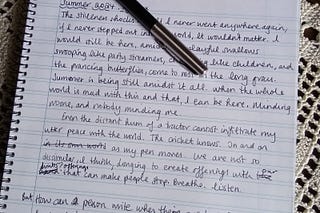 Summer 2021
The stillness shocks
I never went anywhere again,
if I never stepped out
world, it wouldn't matter. I
would still be here,
playful swallows
swooping like party streamers,
like children, and
the prancing butterflies, come to rest
the long grass.
Summer is being still amidst it all. When the whole
world is mad with this and that, I can be here. Minding
mine, and nobody minding me.
Even the distant hum of a tractor cannot infiltrate my
utter peace with the world. The cricket knows. On and on
in its own world as my pen moves. We are not so
dissimilar, I think, longing to create offerings with
that can make people stop. Breathe. Listen.
But how can a person write when